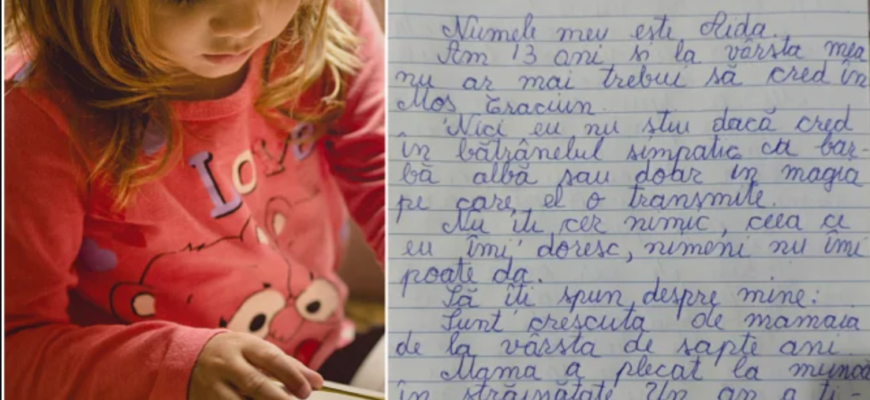 LOVE
Numele meu este Aida.
Am 13 ani și la vârsta mea
nu ar mai trebui să cred în
Moș Crăciun.
Nici eu nu știu dacă cred
în bătrânelul simpatic cu bar-
bă albă sau doar în magia
pe care el o transmite.
Nu îți cer nimic, ceea ce
eu îmi doresc, nimeni nu îmi
poate da.
Să îți spun despre mine:
Sunt crescută de mamaia
de la vârsta de șapte ani.
Mama a plecat la muncă
în străinătate. Un an a ți-